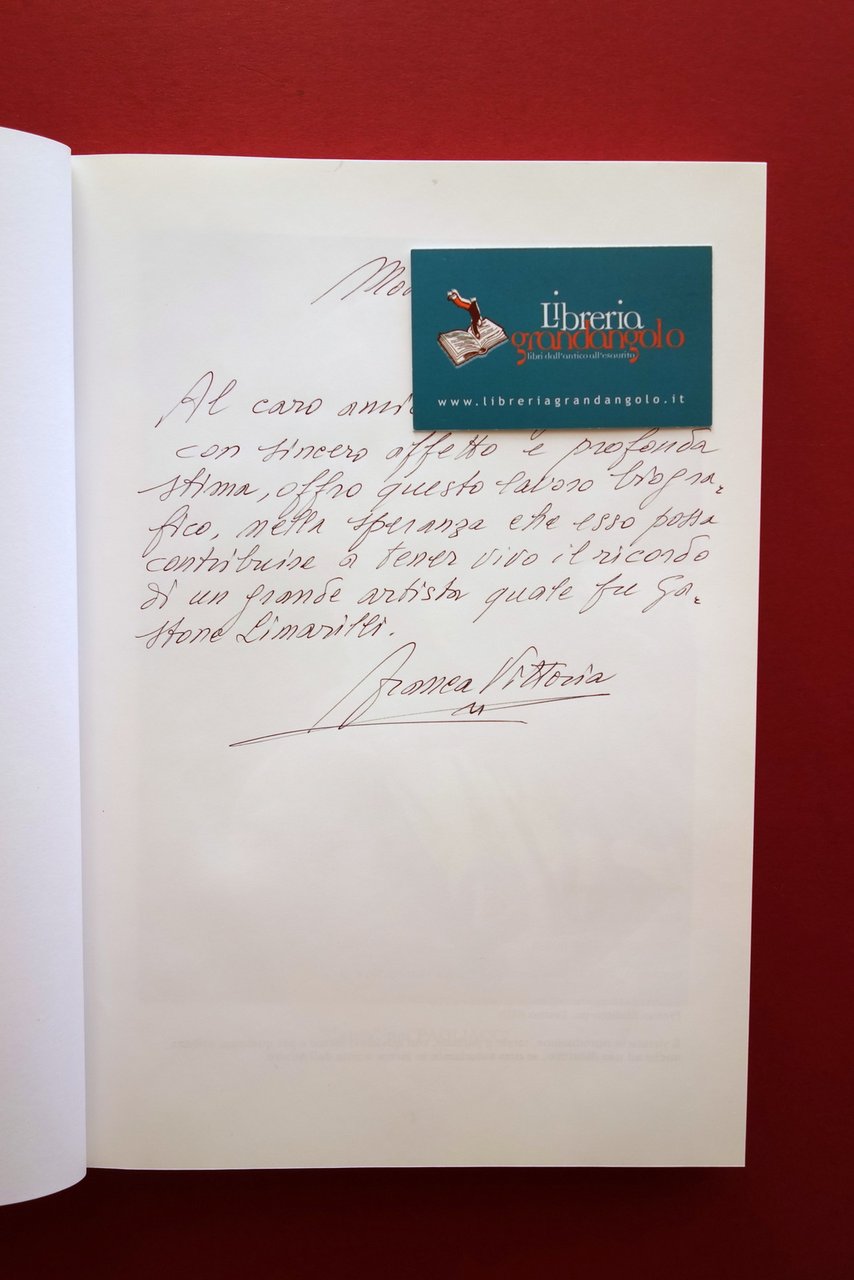 Mo
Libreria
grandangolo
libri dall'antico all'esaurito
www.libreriagrandangolo.it
Al caro ami
con sincero affetto e profonda
stima, offro questo lavoro biogra-
fico, nella speranza che esso possa
contribuire a tener vivo il ricordo
di un grande artista quale fu Ga-
stone Limarilli.
Franca Vittoria